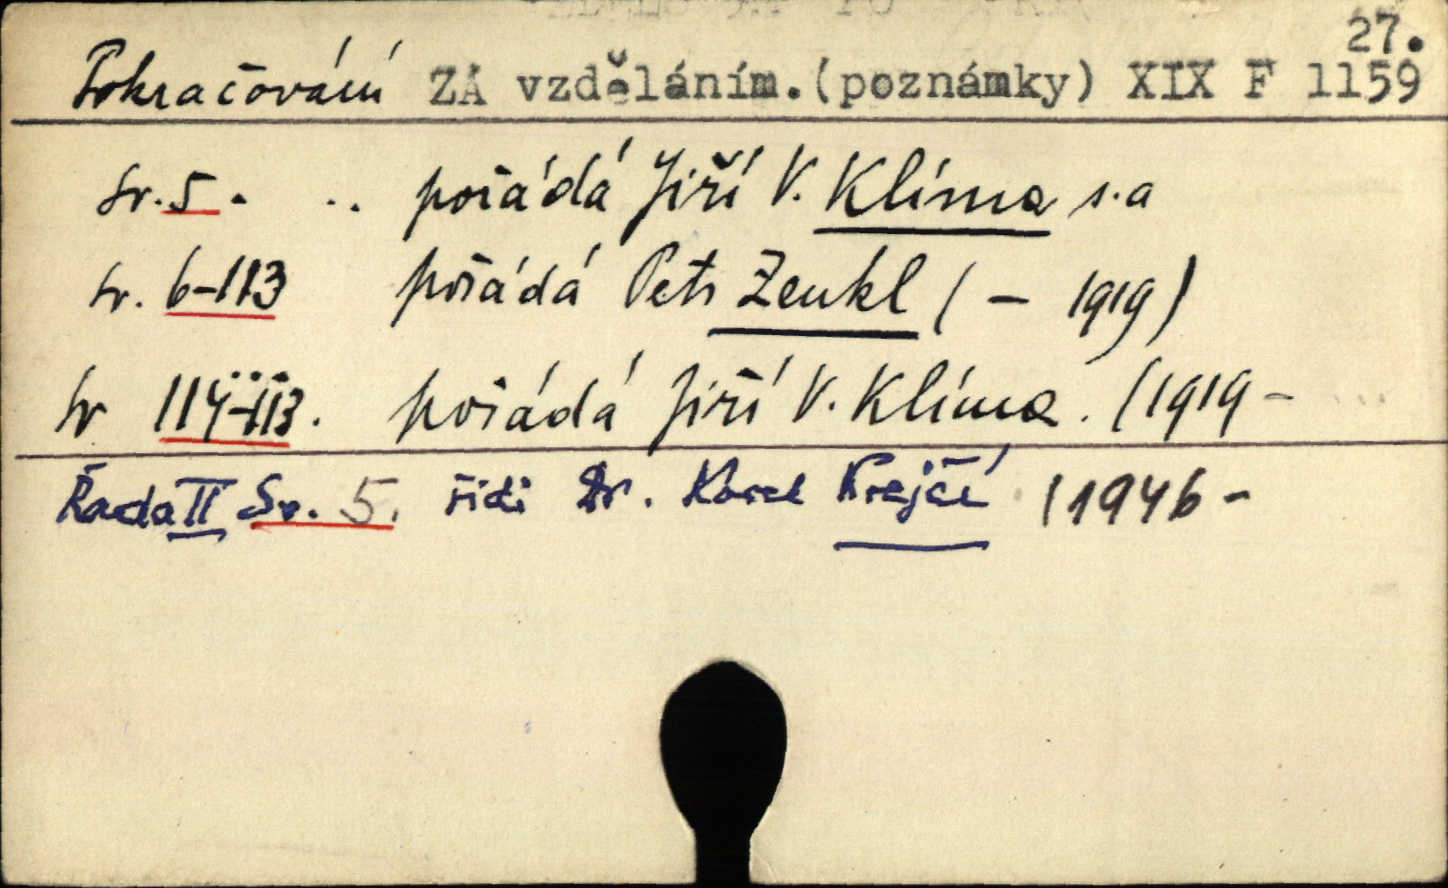 27.
Pokračování ZA vzděláním.(poznámky) XIX F 1159
Sv. 5. .. pořádá Jiří V. Klíma s.a
Sv. 6-113 pořádá Petr Zenkl ( — 1919)
Sv 114-113. pořádá Jiří V. Klíma. (1919 -
Řada II Sv. 5. řídí Dr. Karel Krejčí (1946 -